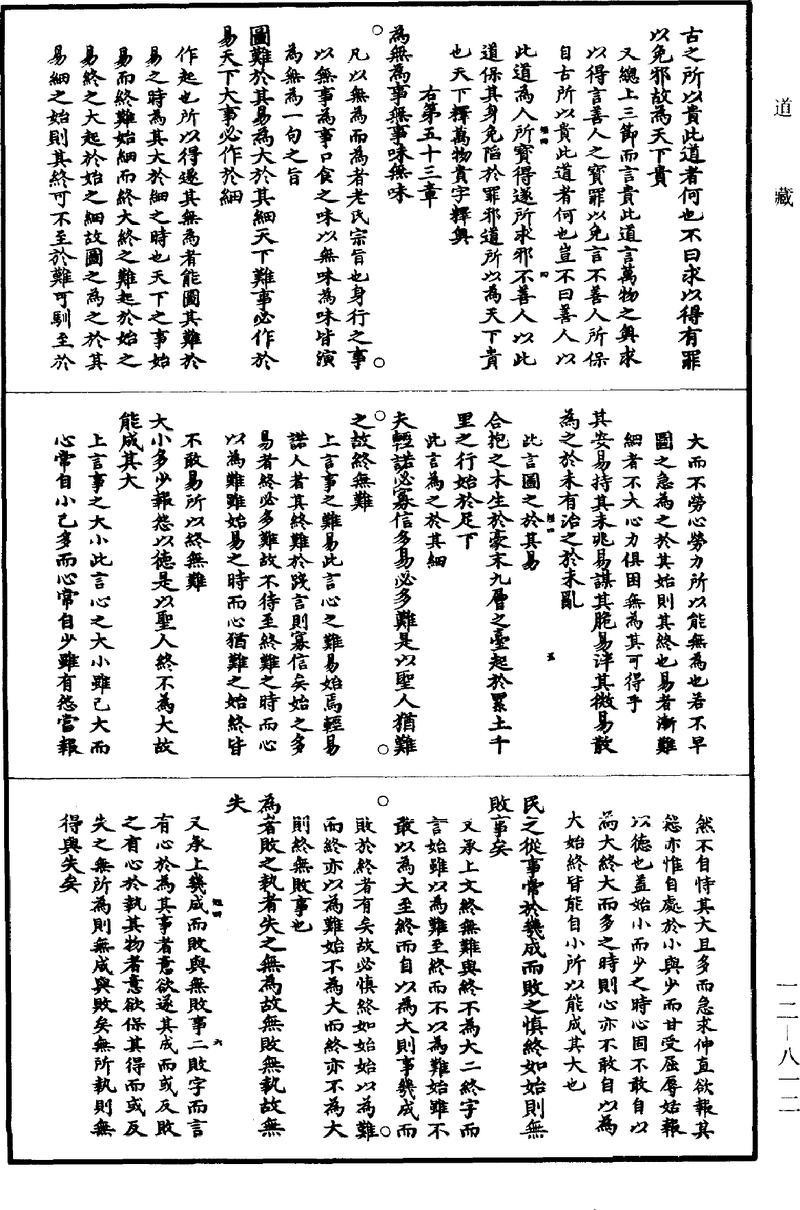 道藏
古之所以貴此道者何也不曰求以得有罪
以免邪故為天下貴
又總上三節而言貴此道言萬物之奧求
以得言善人之寶罪以免言不善人所保
自古所以貴此道者何也豈不曰善人以
此道為人所寶得遂所求邪不善人以此
道保其身免陷於罪邪道所以為天下貴
也天下釋萬物貴字釋奧
右第五十三章
為無為事無事味無味
凡以無為而為者老氏宗旨也身行之事
以無事為事口食之味以無味為味皆演
為無為一句之旨
圖難於其易為大於其細天下難事必作於
易天下大事必作於細
作起也所以得遂其無為者能圖其難於
易之時為其大於細之時也天下之事始
易而終難始細而終大終之難起於始之
易終之大起於始之細故圖之為之於其
易細之始則其終可不至於難可馴至於
大而不勞心勞力所以能無為也若不早
圖之急為之於其始則其終也易者漸難
細者不大心力俱困無為其可得乎
其安易持其未兆易謀其脆易泮其微易散
為之於未有治之於未亂
此言圖之於其易
合抱之木生於豪末九層之臺起於累土千
里之行始於足下
此言為之於其細
夫輕諾必寡信多易必多難是以聖人猶難
之故終無難
上言事之難易此言心之難易始焉輕易
諾人者其終難於踐言則寡信矣始之多
易者終必多難故不待至終難之時而心
以為難雖始易之時而心猶難之始終皆
不敢易所以終無難
大小多少報怨以德是以聖人終不為大故
能成其大
上言事之大小此言心之大小雖己大而
心常自小己多而心常自少雖有怨當報
然不自恃其大且多而急求伸直欲報其
怨亦惟自處於小與少而甘受屈辱姑報
以德也蓋始小而少之時心固不敢自以
為大終大而多之時則心亦不敢自以為
大始終皆能自小所以能成其大也
民之從事常於幾成而敗之慎終如始則無
敗事矣
又承上文終無難與終不為大二終字而
言始雖以為難至終而不以為難始雖不
敢以為大至終而自以為大則事幾成而
敗於終者有矣故必慎終如始始以為難
而終亦以為難始不為大而終亦不為大
則終無敗事也
為者敗之執者失之無為故無敗無執故無
失
又承上幾成而敗與無敗事二敗字而言
有心於為其事者意欲遂其成而或反敗
之有心於執其物者意欲保其得而或反
失之無所為則無成與敗矣無所執則無
得與失矣
一二—八一二